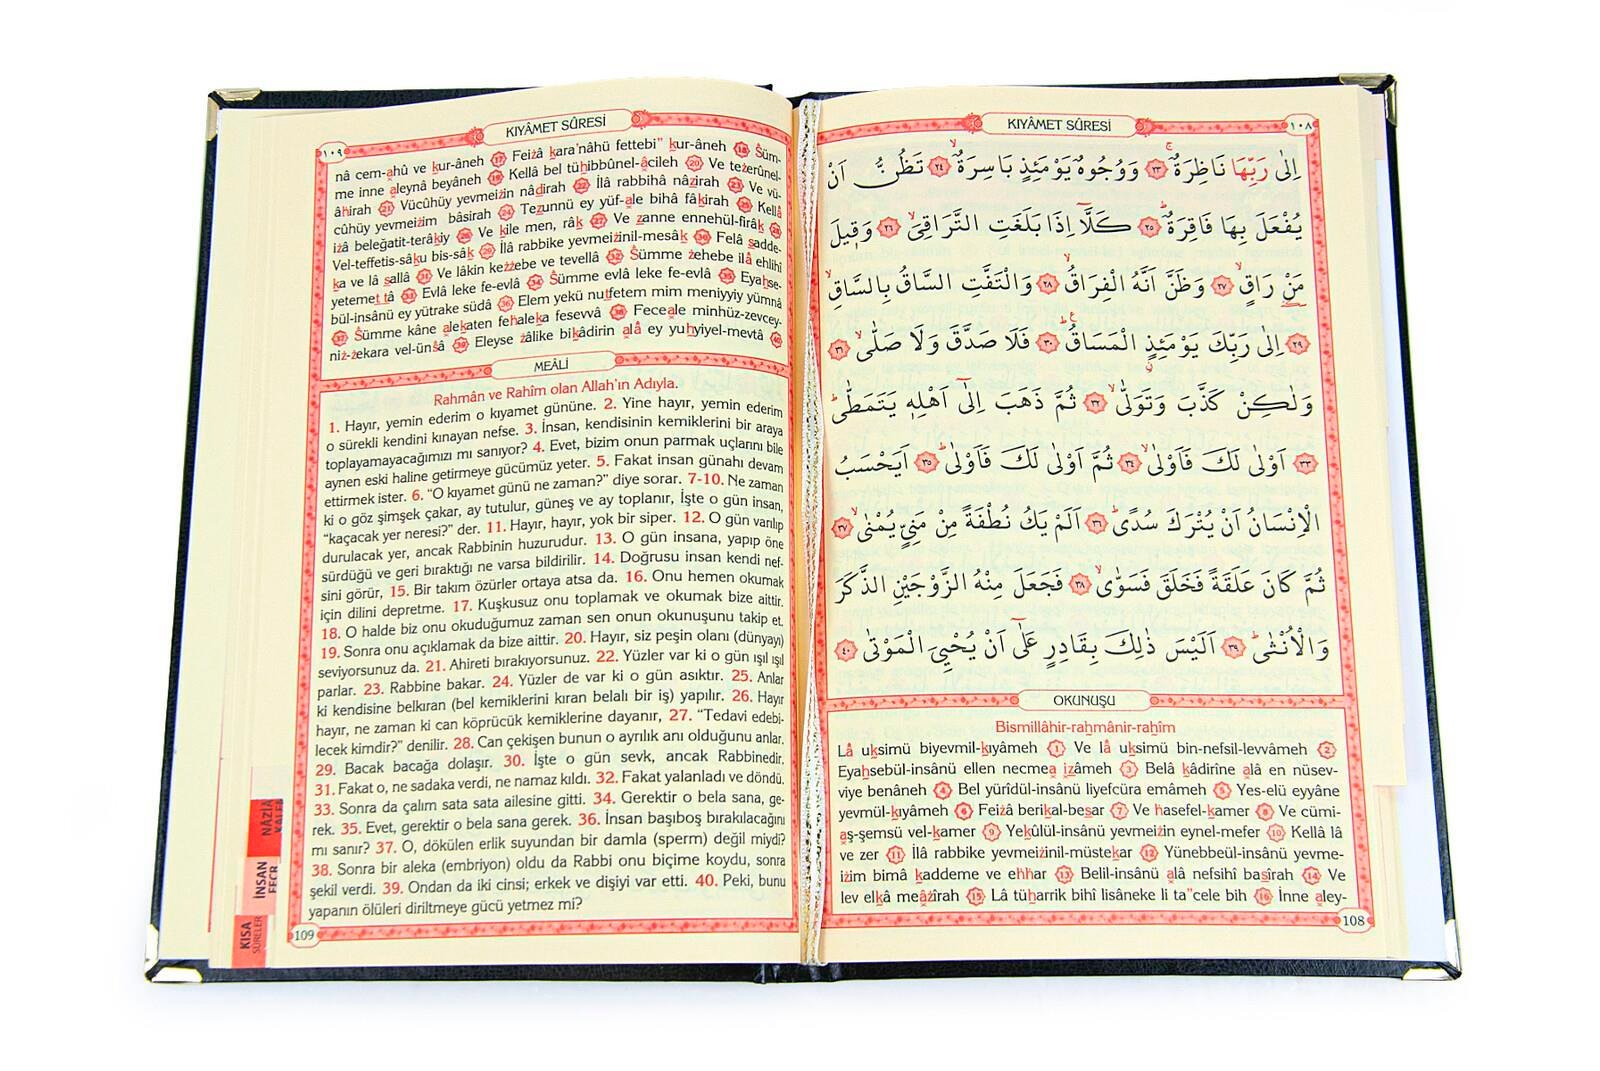 KIYÂMET SÛRESİ
١٠٨
اِلٰى رَبِّهَا نَاظِرَةٌۚ ﴿٢٣﴾ وَوُجُوهٌ يَوْمَئِذٍ بَاسِرَةٌۙ ﴿٢٤﴾ تَظُنُّ اَنْ
يُفْعَلَ بِهَا فَاقِرَةٌۜ ﴿٢٥﴾ كَلَّٓا اِذَا بَلَغَتِ التَّرَاقِيَۙ ﴿٢٦﴾ وَق۪يلَ
مَنْ رَاقٍۙ ﴿٢٧﴾ وَظَنَّ اَنَّهُ الْفِرَاقُۙ ﴿٢٨﴾ وَالْتَفَّتِ السَّاقُ بِالسَّاقِۙ
﴿٢٩﴾ اِلٰى رَبِّكَ يَوْمَئِذٍ الْمَسَاقُۜ ﴿٣٠﴾ فَلَا صَدَّقَ وَلَا صَلّٰىۙ ﴿٣١﴾
وَلٰكِنْ كَذَّبَ وَتَوَلّٰىۙ ﴿٣٢﴾ ثُمَّ ذَهَبَ اِلٰٓى اَهْلِه۪ يَتَمَطّٰىۜ
﴿٣٣﴾ اَوْلٰى لَكَ فَاَوْلٰىۙ ﴿٣٤﴾ ثُمَّ اَوْلٰى لَكَ فَاَوْلٰىۜ ﴿٣٥﴾ اَيَحْسَبُ
الْاِنْسَانُ اَنْ يُتْرَكَ سُدًىۜ ﴿٣٦﴾ اَلَمْ يَكُ نُطْفَةً مِنْ مَنِيٍّ يُمْنٰىۙ ﴿٣٧﴾
ثُمَّ كَانَ عَلَقَةً فَخَلَقَ فَسَوّٰىۙ ﴿٣٨﴾ فَجَعَلَ مِنْهُ الزَّوْجَيْنِ الذَّكَرَ
وَالْاُنْثٰىۜ ﴿٣٩﴾ اَلَيْسَ ذٰلِكَ بِقَادِرٍ عَلٰٓى اَنْ يُحْيِيَ الْمَوْتٰى ﴿٤٠﴾
OKUNUŞU
Bismillâhir-rahmânir-rahîm
Lâ uksimü biyevmil-kıyâmeh (1) Ve lâ uksimü bin-nefsil-levvâmeh (2)
Eyahsebül-insânü ellen necmea izâmeh (3) Belâ kâdirîne alâ en nüsev-
viye benâneh (4) Bel yürîdül-insânü liyefcüra emâmeh (5) Yes-elü eyyâne
yevmül-kıyâmeh (6) Feizâ berikal-besar (7) Ve hasefel-kamer (8) Ve cümi-
aş-şemsü vel-kamer (9) Yekûlül-insânü yevmeizin eynel-mefer (10) Kellâ lâ
ve zer (11) İlâ rabbike yevmeizinil-müstekar (12) Yünebbeül-insânü yevme-
izim bimâ kaddeme ve ehhar (13) Belil-insânü alâ nefsihî basîrah (14) Ve
lev elkâ meâzîrah (15) Lâ tüharrik bihî lisâneke li ta"cele bih (16) İnne aley-
108
KIYÂMET SÛRESİ
١٠٩
nâ cem-ahû ve kur-âneh (17) Feizâ kara'nâhü fettebi" kur-âneh (18) Süm-
me inne aleynâ beyâneh (19) Kellâ bel tühibbûnel-âcileh (20) Ve tezerûnel-
âhirah (21) Vücûhüy yevmeizin nâdirah (22) İlâ rabbihâ nâzirah (23) Ve vü-
cûhüy yevmeizim bâsirah (24) Tezunnü ey yüf-ale bihâ fâkirah (25) Kellâ
izâ beleğatit-terâkiy (26) Ve kîle men, râk (27) Ve zanne ennehül-firâk (28)
Vel-teffetis-sâku bis-sâk (29) İlâ rabbike yevmeizinil-mesâk (30) Felâ sadde-
ka ve lâ sallâ (31) Ve lâkin kezzebe ve tevellâ (32) Sümme zehebe ilâ ehlihî
yetemettâ (33) Evlâ leke fe-evlâ (34) Sümme evlâ leke fe-evlâ (35) Eyahse-
bül-insânü ey yütrake südâ (36) Elem yekü nutfetem mim meniyyiy yümnâ
(37) Sümme kâne alekaten fehaleka fesevvâ (38) Feceale minhüz-zevcey-
niz-zekara vel-ünsâ (39) Eleyse zâlike bikâdirin alâ ey yuhyiyel-mevtâ (40)
MEÂLİ
Rahmân ve Rahîm olan Allah'ın Adıyla.
1. Hayır, yemin ederim o kıyamet gününe. 2. Yine hayır, yemin ederim
o sürekli kendini kınayan nefse. 3. İnsan, kendisinin kemiklerini bir araya
toplayamayacağımızı mı sanıyor? 4. Evet, bizim onun parmak uçlarını bile
aynen eski haline getirmeye gücümüz yeter. 5. Fakat insan günahı devam
ettirmek ister. 6. "O kıyamet günü ne zaman?" diye sorar. 7-10. Ne zaman
ki o göz şimşek çakar, ay tutulur, güneş ve ay toplanır, İşte o gün insan,
"kaçacak yer neresi?" der. 11. Hayır, hayır, yok bir siper. 12. O gün varılıp
durulacak yer, ancak Rabbinin huzurudur. 13. O gün insana, yapıp öne
sürdüğü ve geri bıraktığı ne varsa bildirilir. 14. Doğrusu insan kendi nef-
sini görür, 15. Bir takım özürler ortaya atsa da. 16. Onu hemen okumak
için dilini depretme. 17. Kuşkusuz onu toplamak ve okumak bize aittir.
18. O halde biz onu okuduğumuz zaman sen onun okunuşunu takip et.
19. Sonra onu açıklamak da bize aittir. 20. Hayır, siz peşin olanı (dünyayı)
seviyorsunuz da. 21. Ahireti bırakıyorsunuz. 22. Yüzler var ki o gün ışıl ışıl
parlar. 23. Rabbine bakar. 24. Yüzler de var ki o gün asıktır. 25. Anlar
ki kendisine belkıran (bel kemiklerini kıran belalı bir iş) yapılır. 26. Hayır
hayır, ne zaman ki can köprücük kemiklerine dayanır, 27. "Tedavi edebi-
lecek kimdir?" denilir. 28. Can çekişen bunun o ayrılık anı olduğunu anlar.
29. Bacak bacağa dolaşır. 30. İşte o gün sevk, ancak Rabbinedir.
31. Fakat o, ne sadaka verdi, ne namaz kıldı. 32. Fakat yalanladı ve döndü.
33. Sonra da çalım sata sata ailesine gitti. 34. Gerektir o bela sana, ge-
rek. 35. Evet, gerektir o bela sana gerek. 36. İnsan başıboş bırakılacağını
mı sanır? 37. O, dökülen erlik suyundan bir damla (sperm) değil miydi?
38. Sonra bir aleka (embriyon) oldu da Rabbi onu biçime koydu, sonra
şekil verdi. 39. Ondan da iki cinsi; erkek ve dişiyi var etti. 40. Peki, bunu
yapanın ölüleri diriltmeye gücü yetmez mi?
109
İNSAN
KISA
SÛRELER